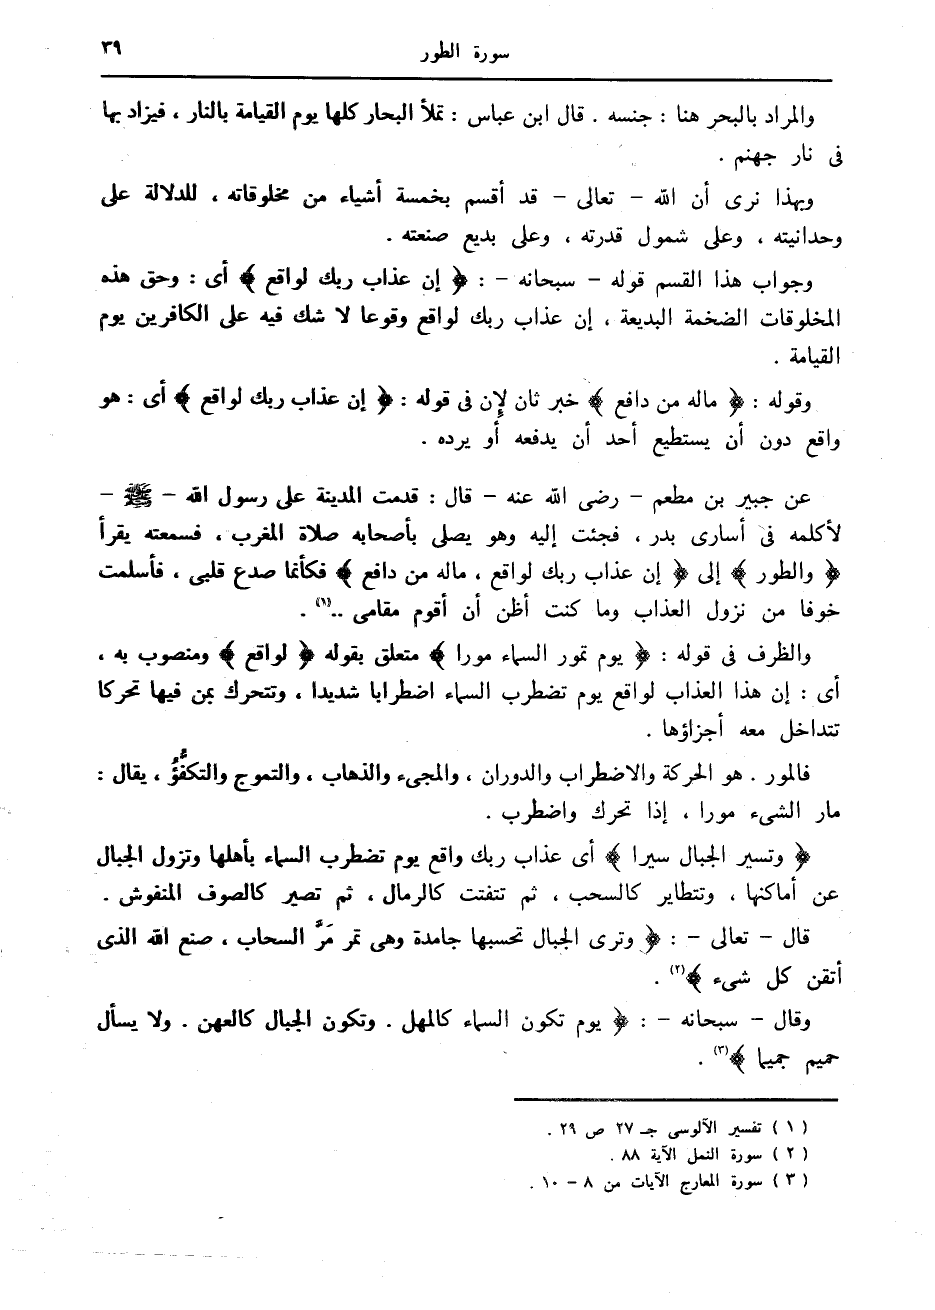 سورة الطور ٣٩
والمراد بالبحر هنا : جنسه . قال ابن عباس : تملأ البحار كلها يوم القيامة بالنار ، فيزاد بها
فى نار جهنم .
وبهذا نرى أن الله – تعالى – قد أقسم بخمسة أشياء من مخلوقاته ، للدلالة على
وحدانيته ، وعلى شمول قدرته ، وعلى بديع صنعته .
وجواب هذا القسم قوله – سبحانه – : ﴿ إن عذاب ربك لواقع ﴾ أى : وحق هذه
المخلوقات الضخمة البديعة ، إن عذاب ربك لواقع وقوعا لا شك فيه على الكافرين يوم
القيامة .
وقوله : ﴿ ماله من دافع ﴾ خبر ثان لإن فى قوله : ﴿ إن عذاب ربك لواقع ﴾ أى : هو
واقع دون أن يستطيع أحد أن يدفعه أو يرده .
عن جبير بن مطعم – رضى الله عنه – قال : قدمت المدينة على رسول الله – ﷺ –
لأكلمه فى أسارى بدر ، فجئت إليه وهو يصلى بأصحابه صلاة المغرب ، فسمعته يقرأ
﴿ والطور ﴾ إلى ﴿ إن عذاب ربك لواقع ، ماله من دافع ﴾ فكأنما صدع قلبى ، فأسلمت
خوفا من نزول العذاب وما كنت أظن أن أقوم مقامى ..(١) .
والظرف فى قوله : ﴿ يوم تمور السماء مورا ﴾ متعلق بقوله ﴿ لواقع ﴾ ومنصوب به ،
أى : إن هذا العذاب لواقع يوم تضطرب السماء اضطرابا شديدا ، وتتحرك بمن فيها تحركا
تتداخل معه أجزاؤها .
فالمور . هو الحركة والاضطراب والدوران ، والمجىء والذهاب ، والتموج والتكفُّؤ ، يقال :
مار الشىء مورا ، إذا تحرك واضطرب .
﴿ وتسير الجبال سيرا ﴾ أى عذاب ربك واقع يوم تضطرب السماء بأهلها وتزول الجبال
عن أماكنها ، وتتطاير كالسحب ، ثم تتفتت كالرمال ، ثم تصير كالصوف المنفوش .
قال – تعالى – : ﴿ وترى الجبال تحسبها جامدة وهى تمر مَرَّ السحاب ، صنع الله الذى
أتقن كل شىء ﴾(٢) .
وقال – سبحانه – : ﴿ يوم تكون السماء كالمهل . وتكون الجبال كالعهن . ولا يسأل
حميم حميما ﴾(٣) .
( ١ ) تفسير الآلوسى جـ ٢٧ ص ٢٩ .
( ٢ ) سورة النمل الآية ٨٨ .
( ٣ ) سورة المعارج الآيات من ٨ – ١٠ .